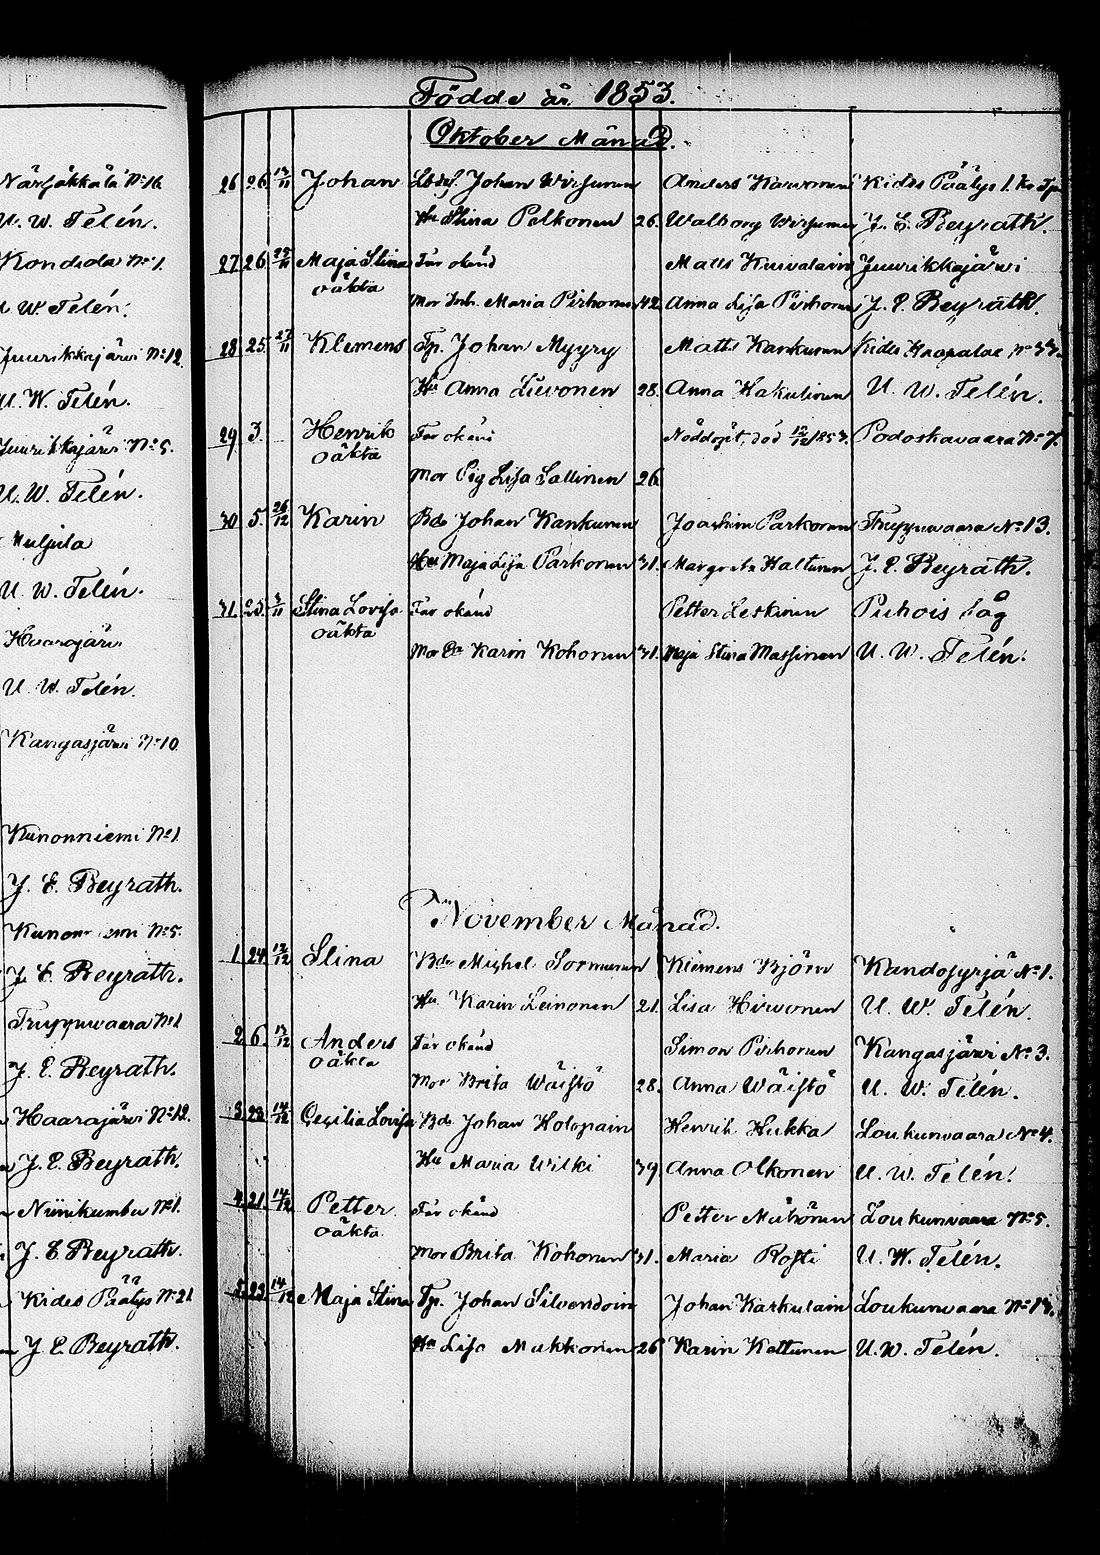 Närsäkkälä No 16
U. W. Telén.
Kondola No 1.
U. W. Telén.
Juurikkajärvi No 12.
U. W. Telén.
Juurikkajärvi No 5.
U. W. Telén.
U. W. Telén.
Haarajärvi
U. W. Telén.
Kangasjärvi No 10.
Kunonniemi No 1
J. E. Beyrath.
Kunonniemi No 5.
J. E. Beyrath.
Truppuvaara No 1
J. E. Beyrath.
Haarajärvi No 12.
J. E. Beyrath.
Niinikumbu No 1.
J. E. Beyrath.
Kides Päätys No 21
J. E. Beyrath.
Födde år 1853.
Oktober Månad.
26 26 13/11 Johan Johan Wirsunen Anders Karvonen Kides Päätys 1.
Hu Stina Palkonen 26. Walborg Wirsunen J. E. Beyrath.
27 26 Maja Stina Far okänd Matts Kuivalain Juurikkajärvi
oäkta
Mor Inh. Maria Pirhonen 42. Anna Lisa Pirhonen J. E. Beyrath.
28 25. 27/11 Klemens Tp. Johan Myyry Matts Kankunen Kides Kaapalae No 33.
Hu Anna Lievonen 28. Anna Hakulinen U. W. Telén.
29 3. Henrik Far okänd Nöddöpt, död 12/12 1853. Podoskavaara No 7.
oäkta
Mor Pig Lisa Sallinen 26
30 5. 26/12 Karin Bde Johan Kankunen Joachim Parkonen Truppuvaara No 13.
Hu Maja Lisa Parkonen 31. Margreta Haltunen J. E. Beyrath.
31. 25. Stina Lovisa Far okänd Petter Leskinen Puhois
oäkta
Mor Karin Kohonen 31. Maja Stina Massinen U. W. Telén.
November Månad.
1 24 13/12 Stina Bde Michel Sormunen Klemens Björn Kandosyrjä No 1.
Hu Karin Leinonen 21. Lisa Hirvonen U. W. Telén.
2 6. 13/12 Anders Far okänd Simon Pirhonen Kangasjärvi No 3.
oäkta
Mor Brita Wäistö 28. Anna Wäistö U. W. Telén.
3. 23. 14/12 Cecilia Lovisa Bde Johan Holopain Henrik Hukka Loukunvaara No 4.
Hu Maria Wilki 39. Anna Olkonen U. W. Telén.
4. 21. 14/12 Petter Far okänd Petter Loukunvaara No 5.
oäkta
Mor Brita Kohonen 31. Maria Rosti U. W. Telén.
5. 23. 14/12 Maja Stina Tp. Johan Silvendoin Johan Karkulain Loukunvaara No 13.
Hu Lisa Mukkonen 26 Karin Kattunen U. W. Telén.